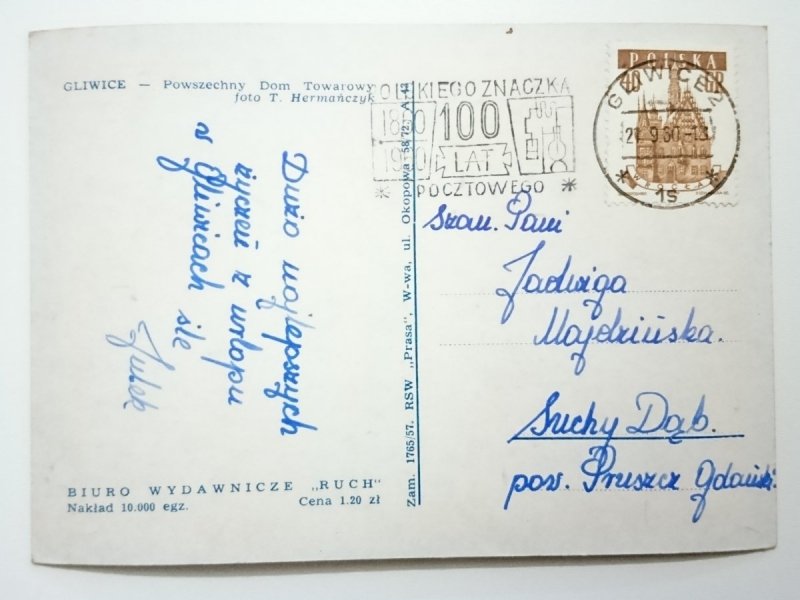 GLIWICE — Powszechny Dom Towarowy
foto T. Hermańczyk
Dużo najlepszych
życzeń z urlopu
w Gliwicach śle
Julek
BIURO WYDAWNICZE „RUCH"
Nakład 10.000 egz. Cena 1.20 zł
Zam. 1765/57. RSW „Prasa", W-wa, ul. Okopowa 58/72. A-43
OLSKIEGO ZNACZKA
1860 100
1960 LAT
* POCZTOWEGO *
POLSKA
40 GR
WROCŁAW
GLIWICE 2
9.60-13
* 1s *
Szan. Pani
Jadwiga
Majdzińska.
Suchy Dąb.
pow. Pruszcz Gdański.